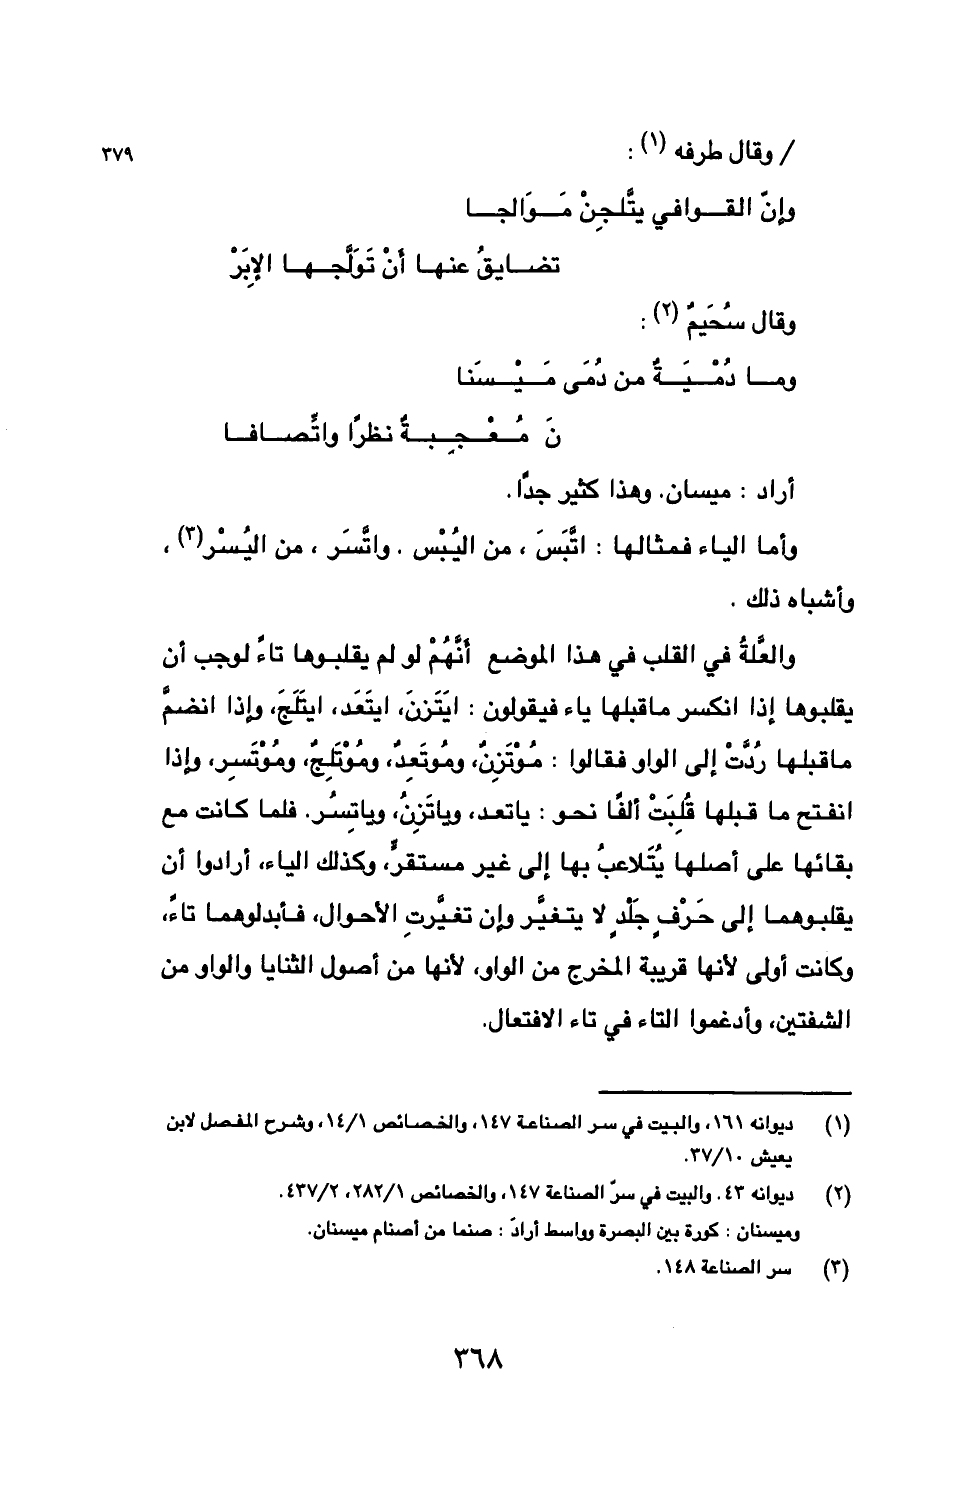 / وقال طرفه (١) :
٣٧٩
وإنّ القـــوافي يتَّلجِنْ مَـــوَالجـــا
تضـــايقُ عنهـا أنْ تَوَلَّجـــهـا الإبَرْ
وقال سُحَيمُ (٢) :
ومـــا دُمْـــيَـــةٌ من دُمَى مَـــيْـــسَنا
نَ مُـــعْـــجِـــبـــةٌ نظرًا واتِّصـــافـــا
أراد : ميسان. وهذا كثير جدًّا.
وأما الياء فمثالها : اتَّبَسَ ، من اليُبْس . واتَّسَر ، من اليُسْر(٣) ،
وأشباه ذلك .
والعلَّةُ في القلب في هذا الموضع أنَّهُمْ لو لم يقلبوها تاءً لوجب أن
يقلبوها إذا انكسر ماقبلها ياء فيقولون : ايتَزنَ، ايتَعَد، ايتَلَجَ، وإذا انضمَّ
ماقبلها رُدَّتْ إلى الواو فقالوا : مُوْتَزِنٌ، ومُوتَعِدٌ، ومُوْتَلِجٌ، ومُوْتَسِر، وإذا
انفتح ما قبلها قُلِبَتْ ألفًا نحو : ياتعد، وياتَزِنُ، وياتسُر. فلما كانت مع
بقائها على أصلها يُتَلاعبُ بها إلى غير مستقرٍّ، وكذلك الياء، أرادوا أن
يقلبوهما إلى حَرْفٍ جَلْدٍ لا يتغيَّر وإن تغيَّرتِ الأحوال، فأبدلوهما تاءً،
وكانت أولى لأنها قريبة المخرج من الواو، لأنها من أصول الثنايا والواو من
الشفتين، وأدغموا التاء في تاء الافتعال.
(١) ديوانه ١٦١، والبيت في سر الصناعة ١٤٧، والخصائص ١٤/١، وشرح المفصل لابن
يعيش ٣٧/١٠.
(٢) ديوانه ٤٣. والبيت في سرّ الصناعة ١٤٧، والخصائص ٢٨٢/١، ٤٣٧/٢.
وميسنان : كورة بين البصرة وواسط أرادَ : صنما من أصنام ميسنان.
(٣) سر الصناعة ١٤٨.
٣٦٨